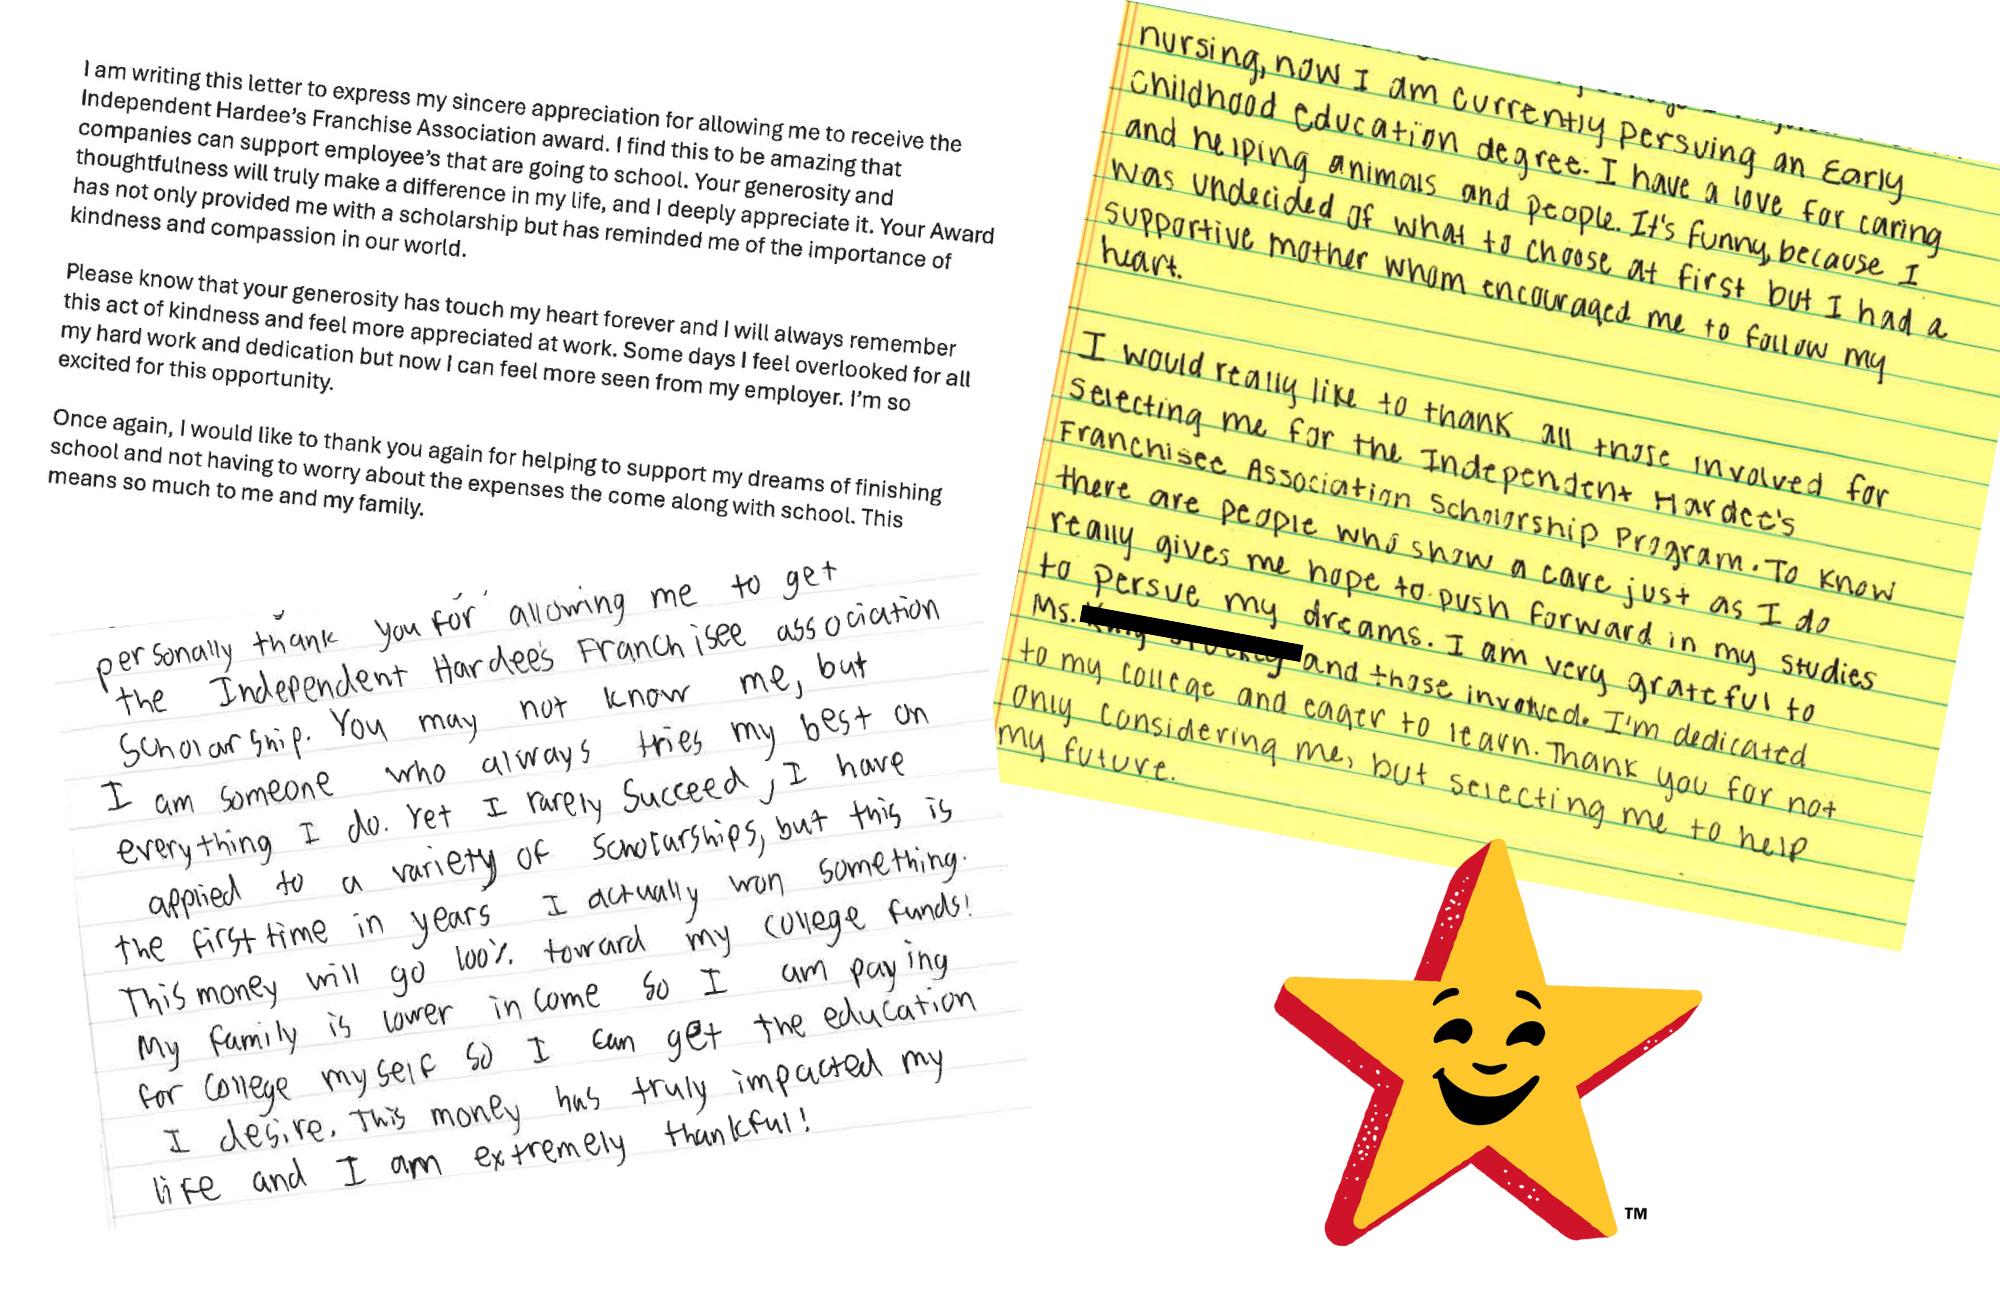 I am writing this letter to express my sincere appreciation for allowing me to receive the
Independent Hardee's Franchise Association award. I find this to be amazing that
companies can support employee's that are going to school. Your generosity and
thoughtfulness will truly make a difference in my life, and I deeply appreciate it. Your Award
has not only provided me with a scholarship but has reminded me of the importance of
kindness and compassion in our world.
Please know that your generosity has touch my heart forever and I will always remember
this act of kindness and feel more appreciated at work. Some days I feel overlooked for all
my hard work and dedication but now I can feel more seen from my employer. I'm so
excited for this opportunity.
Once again, I would like to thank you again for helping to support my dreams of finishing
school and not having to worry about the expenses the come along with school. This
means so much to me and my family.
personally thank you for allowing me to get
the Independent Hardee's Franchisee association
Scholarship. You may not know me, but
I am someone who always tries my best on
everything I do. Yet I rarely succeed, I have
applied to a variety of scholarships, but this is
the first time in years I actually won something.
This money will go 100% toward my college funds!
My family is lower income so I am paying
for college myself so I can get the education
I desire. This money has truly impacted my
life and I am extremely thankful!
nursing, now I am currently persuing an Early
childhood education degree. I have a love for caring
and helping animals and people. It's funny, because I
was undecided of what to choose at first but I had a
supportive mother whom encouraged me to follow my
heart.
I would really like to thank all those involved for
selecting me for the Independent Hardee's
Franchisee Association Scholorship Program. To know
there are people who show a care just as I do
really gives me hope to push forward in my studies
to persue my dreams. I am very grateful to
Ms. and those involved. I'm dedicated
to my college and eager to learn. Thank you for not
only considering me, but selecting me to help
my future.
TM